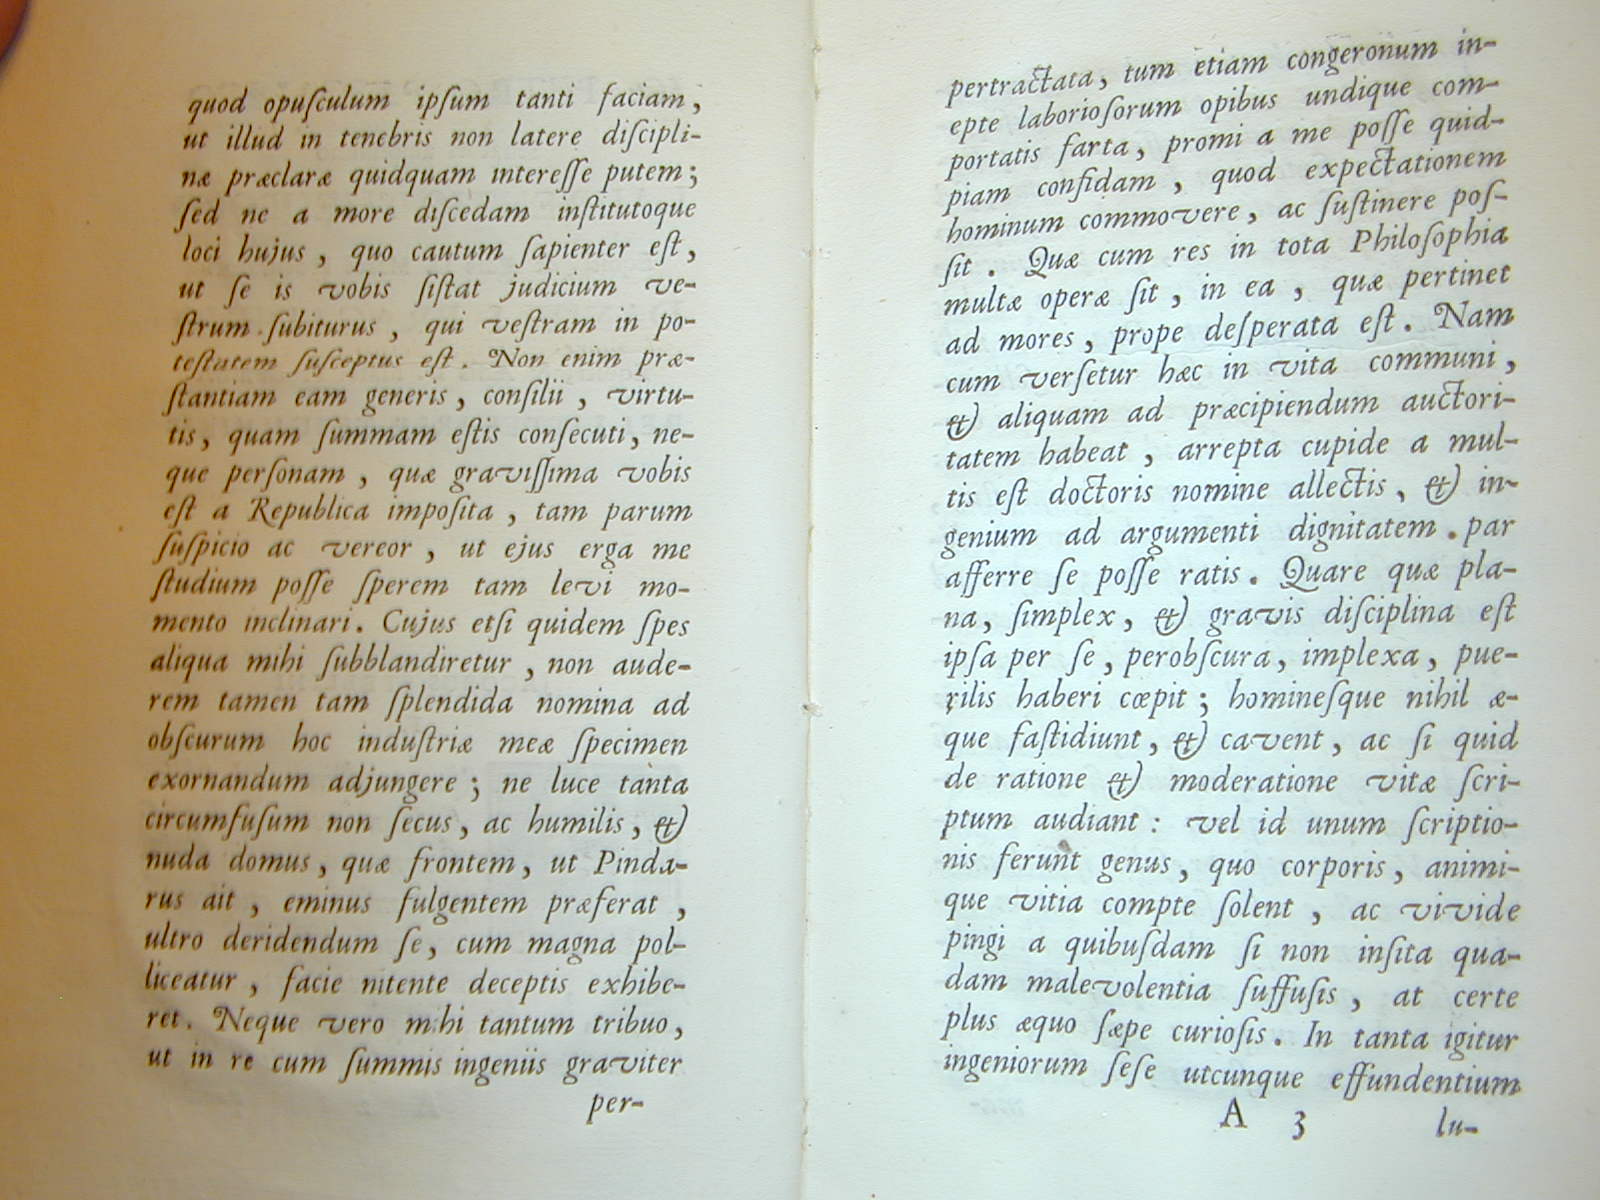 quod opuſculum ipſum tanti faciam,
ut illud in tenebris non latere diſcipli-
næ præclaræ quidquam intereſſe putem;
ſed ne a more diſcedam inſtitutoque
loci hujus, quo cautum ſapienter eſt,
ut ſe is vobis ſiſtat judicium ve-
ſtrum ſubiturus, qui veſtram in po-
teſtatem ſuſceptus eſt. Non enim præ-
ſtantiam eam generis, conſilii, virtu-
tis, quam ſummam eſtis conſecuti, ne-
que perſonam, quæ graviſſima vobis
eſt a Republica impoſita, tam parum
ſuſpicio ac vereor, ut ejus erga me
ſtudium poſſe ſperem tam levi mo-
mento inclinari. Cujus etſi quidem ſpes
aliqua mihi ſubblandiretur, non aude-
rem tamen tam ſplendida nomina ad
obſcurum hoc induſtriæ meæ ſpecimen
exornandum adjungere; ne luce tanta
circumfuſum non ſecus, ac humilis, &
nuda domus, quæ frontem, ut Pinda-
rus ait, eminus fulgentem præferat,
ultro deridendum ſe, cum magna pol-
liceatur, facie nitente deceptis exhibe-
ret. Neque vero mihi tantum tribuo,
ut in re cum ſummis ingeniis graviter
per-
pertractata, tum etiam congeronum in-
epte laborioſorum opibus undique com-
portatis farta, promi a me poſſe quid-
piam confidam, quod expectationem
hominum commovere, ac ſuſtinere poſ-
ſit. Quæ cum res in tota Philoſophia
multæ operæ ſit, in ea, quæ pertinet
ad mores, prope deſperata eſt. Nam
cum verſetur hæc in vita communi,
& aliquam ad præcipiendum auctori-
tatem habeat, arrepta cupide a mul-
tis eſt doctoris nomine allectis, & in-
genium ad argumenti dignitatem par
afferre ſe poſſe ratis. Quare quæ pla-
na, ſimplex, & gravis diſciplina eſt
ipſa per ſe, perobſcura, implexa, pue-
rilis haberi cœpit; homineſque nihil æ-
que faſtidiunt, & cavent, ac ſi quid
de ratione & moderatione vitæ ſcri-
ptum audiant: vel id unum ſcriptio-
nis ferunt genus, quo corporis, animi-
que vitia compte ſolent, ac vivide
pingi a quibuſdam ſi non inſita qua-
dam malevolentia ſuffuſis, at certe
plus æquo ſæpe curioſis. In tanta igitur
ingeniorum ſeſe utcunque effundentium
A 3 lu-